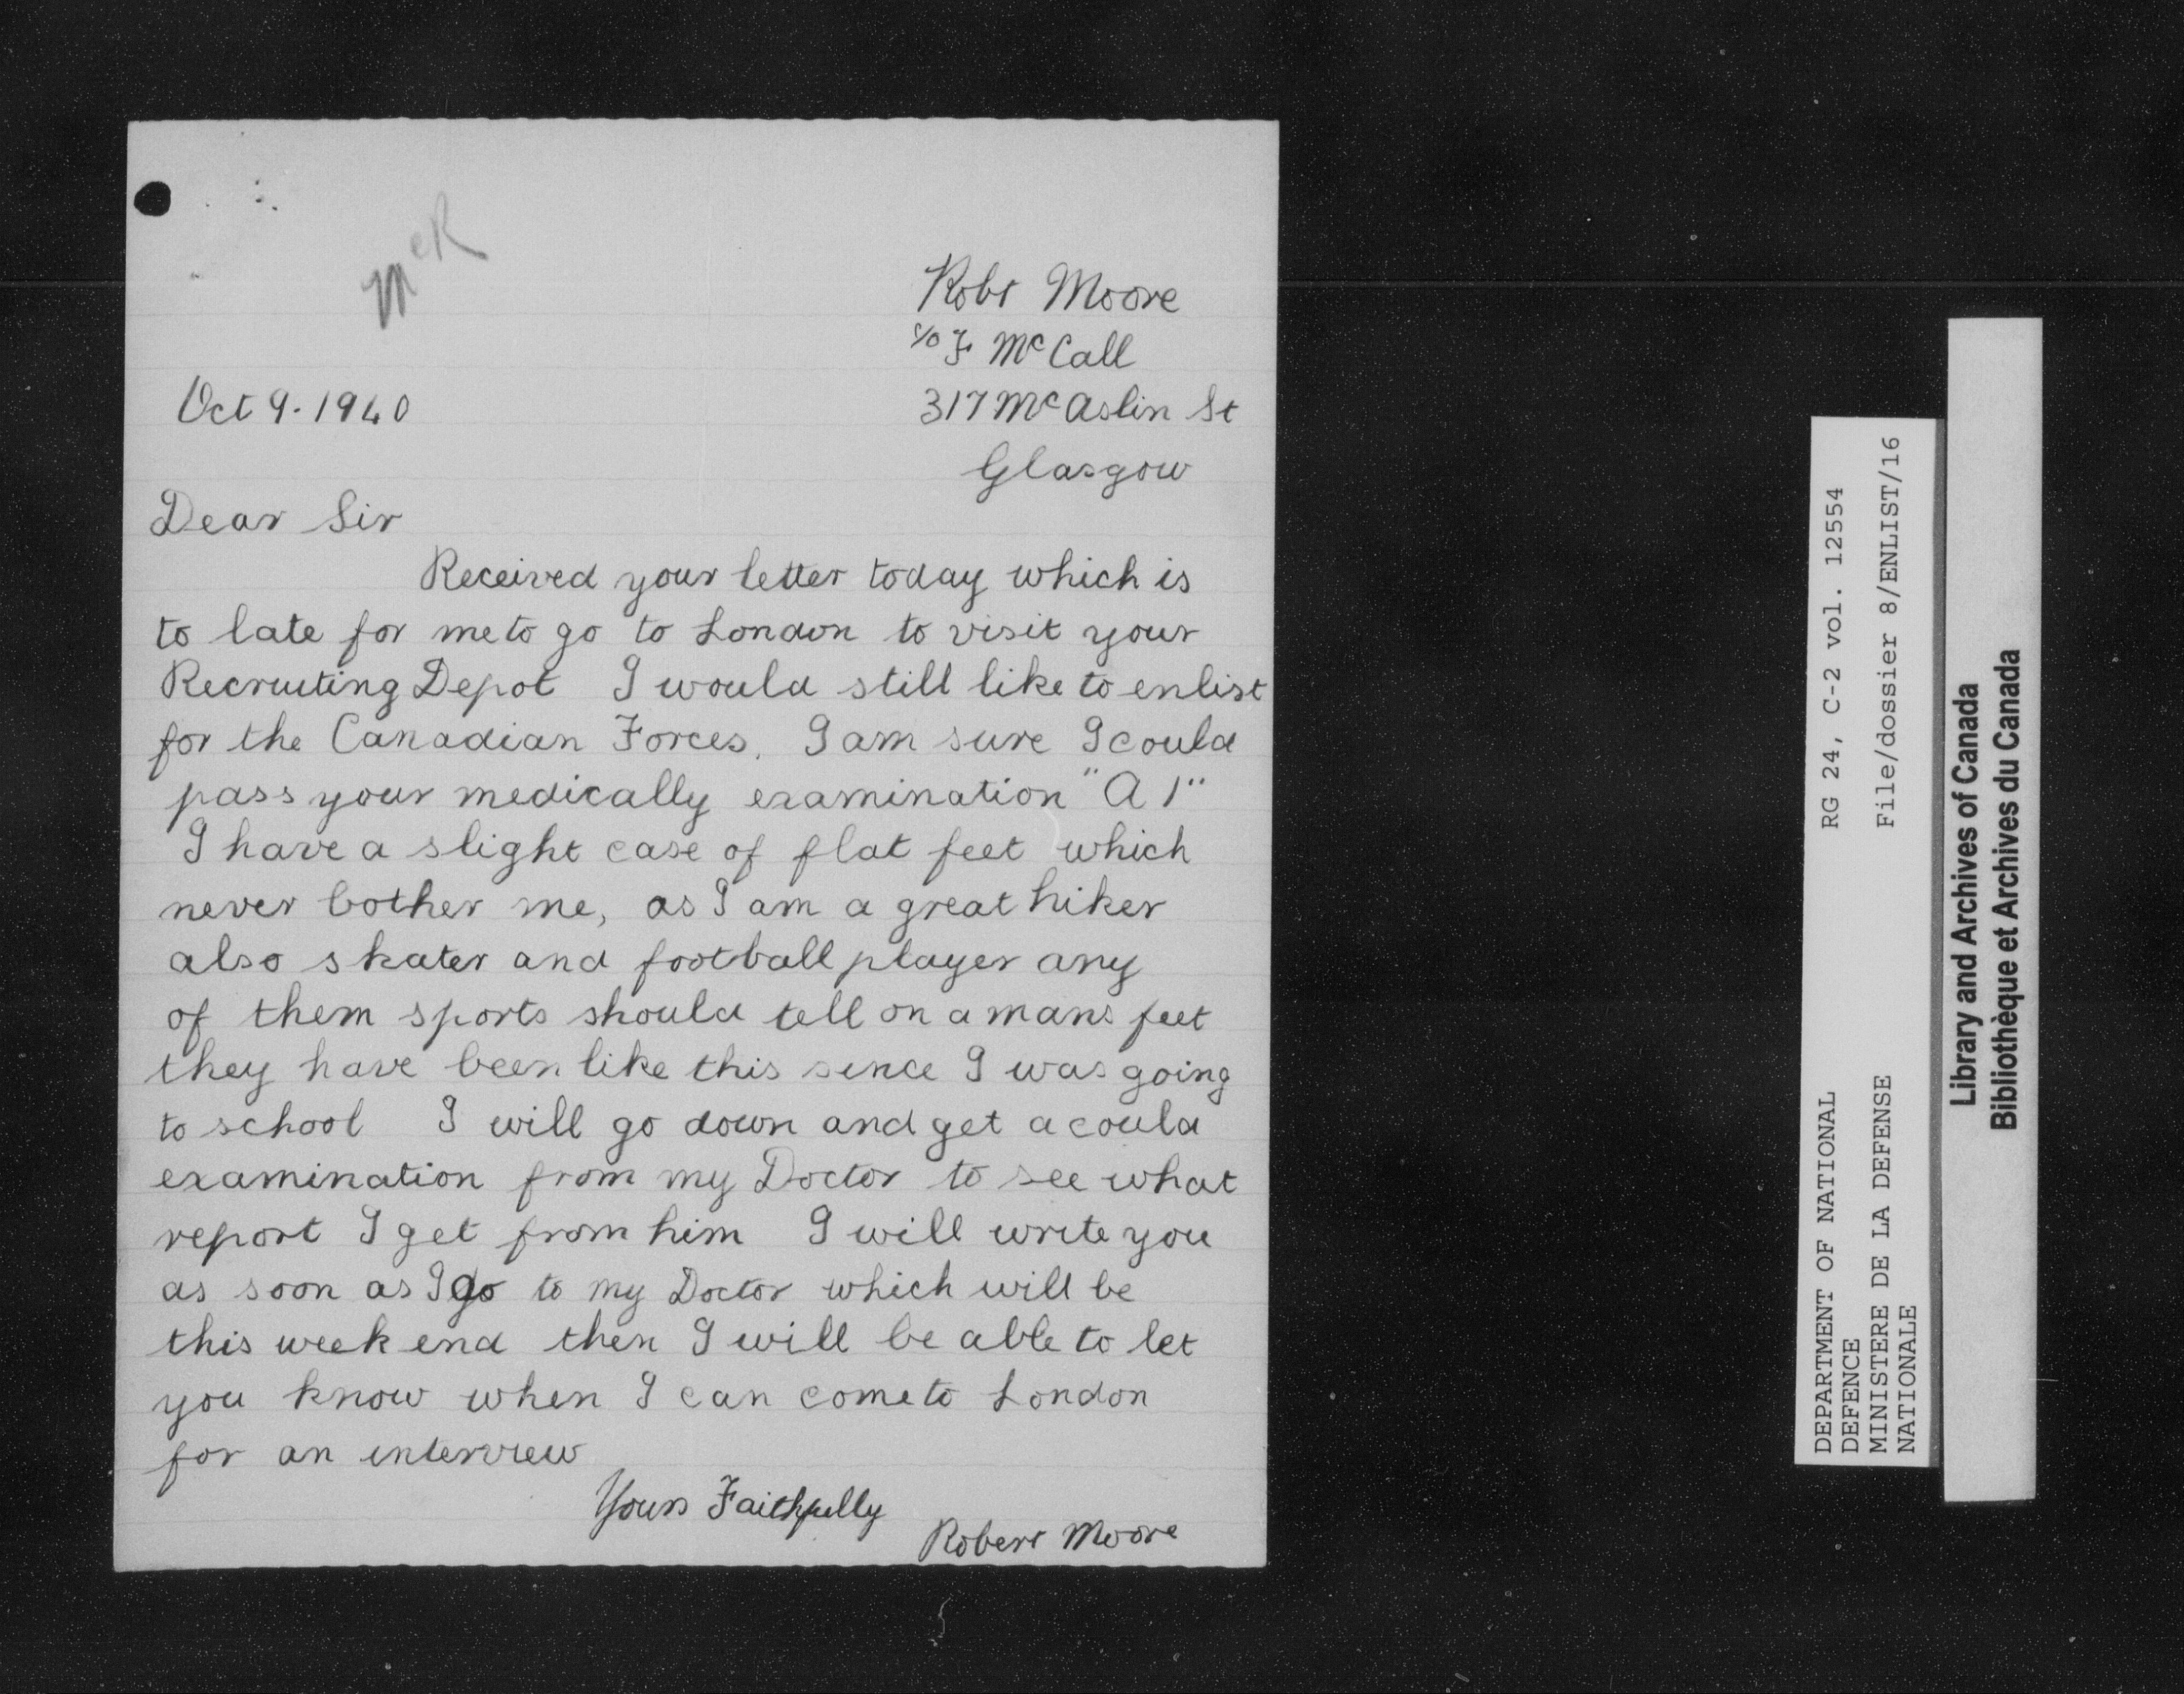 McR
Robt Moore
c/o F McCall
Oct 9. 1940
317 McAslin St
Glasgow
Dear Sir
Received your letter today which is
to late for me to go to London to visit your
Recruiting Depot I would still like to enlist
for the Canadian Forces. I am sure I could
pass your medically examination "A 1"
I have a slight case of flat feet which
never bother me, as I am a great hiker
also skater and football player any
of them sports should tell on a mans feet
they have been like this since I was going
to school I will go down and get a could
examination from my Doctor to see what
report I get from him I will write you
as soon as I go to my Doctor which will be
this week end then I will be able to let
you know when I can come to London
for an interview
Yours Faithfully
Robert Moore
DEPARTMENT OF NATIONAL
DEFENCE
MINISTERE DE LA DEFENSE
NATIONALE
RG 24, C-2 vol. 12554
File/dossier 8/ENLIST/16
Library and Archives of Canada
Bibliothèque et Archives du Canada